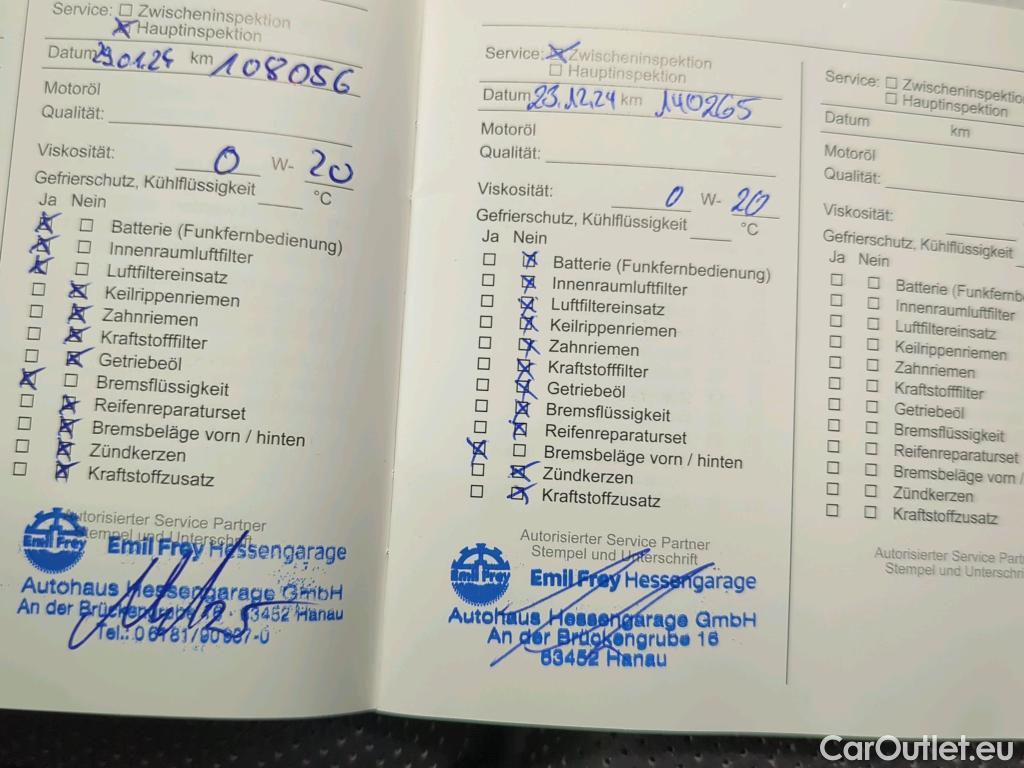 Service: Zwischeninspektion
Hauptinspektion
Datum 29.01.24 km 108056
Motoröl
Qualität:
Viskosität: 0 W- 20
Gefrierschutz, Kühlflüssigkeit °C
Ja Nein
Batterie (Funkfernbedienung)
Innenraumluftfilter
Luftfiltereinsatz
Keilrippenriemen
Zahnriemen
Kraftstofffilter
Getriebeöl
Bremsflüssigkeit
Reifenreparaturset
Bremsbeläge vorn / hinten
Zündkerzen
Kraftstoffzusatz
Autorisierter Service Partner
Stempel und Unterschrift
Emil Frey
Emil Frey Hessengarage
Autohaus Hessengarage GmbH
An der Brückengrube 63452 Hanau
Tel.:
Service: Zwischeninspektion
Hauptinspektion
Datum 23.12.24 km 140265
Motoröl
Qualität:
Viskosität: 0 W- 20
Gefrierschutz, Kühlflüssigkeit °C
Ja Nein
Batterie (Funkfernbedienung)
Innenraumluftfilter
Luftfiltereinsatz
Keilrippenriemen
Zahnriemen
Kraftstofffilter
Getriebeöl
Bremsflüssigkeit
Reifenreparaturset
Bremsbeläge vorn / hinten
Zündkerzen
Kraftstoffzusatz
Autorisierter Service Partner
Stempel und Unterschrift
Emil Frey
Emil Frey Hessengarage
Autohaus Hessengarage GmbH
An der Brückengrube 16
63452 Hanau
Service: Zwischeninspektion
Hauptinspektion
Datum km
Motoröl
Qualität:
Viskosität:
Gefrierschutz, Kühlflüssigkeit
Ja Nein
Batterie (Funkfernb
Innenraumluftfilter
Luftfiltereinsatz
Keilrippenriemen
Zahnriemen
Kraftstofffilter
Getriebeöl
Bremsflüssigkeit
Reifenreparaturset
Bremsbeläge vorn /
Zündkerzen
Kraftstoffzusatz
Autorisierter Service Partn
Stempel und Unterschri
CarOutlet.eu